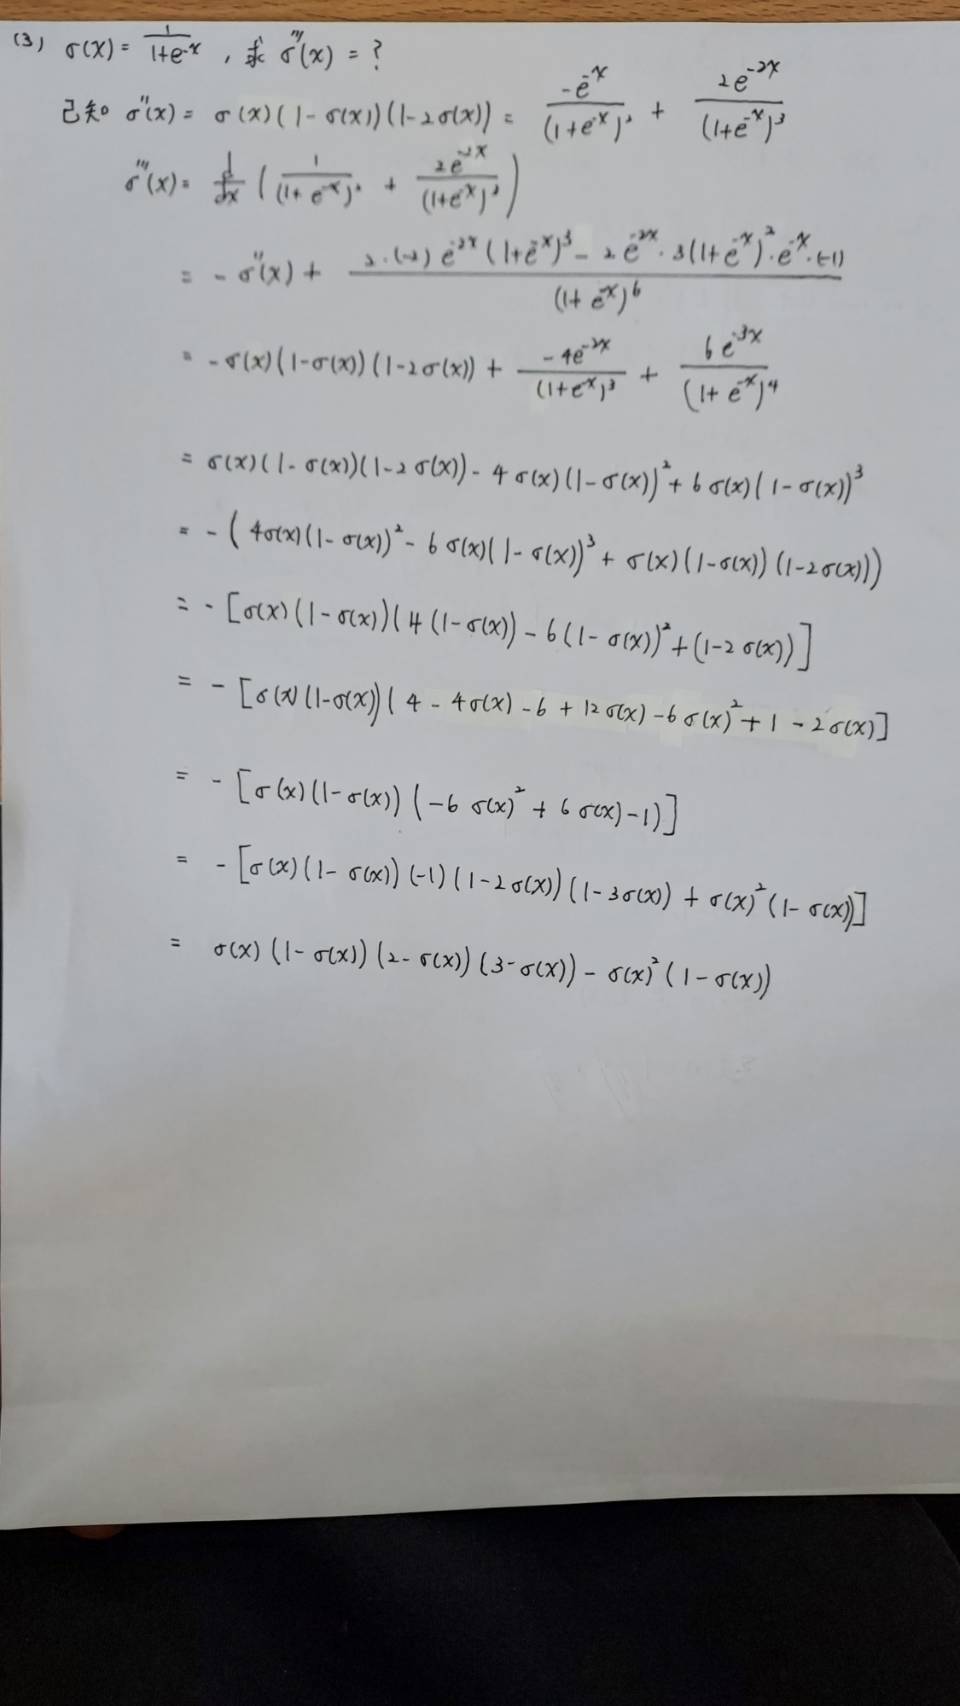 (3) σ(x) = 1/(1+e^-x) , 求 σ'''(x) = ?
已知 σ''(x) = σ(x)(1-σ(x))(1-2σ(x)) = -e^-x/(1+e^-x)^2 + 2e^-2x/(1+e^-x)^3
σ'''(x) = d/dx (1/(1+e^-x)^2 + 2e^-2x/(1+e^-x)^3)
= -σ''(x) + (2·(-2)e^-2x(1+e^-x)^3 - 2e^-2x·3(1+e^-x)^2·e^-x·(-1))/(1+e^-x)^6
= -σ(x)(1-σ(x))(1-2σ(x)) + -4e^-2x/(1+e^-x)^3 + 6e^-3x/(1+e^-x)^4
= σ(x)(1-σ(x))(1-2σ(x)) - 4σ(x)(1-σ(x))^2 + 6σ(x)(1-σ(x))^3
= -(4σ(x)(1-σ(x))^2 - 6σ(x)(1-σ(x))^3 + σ(x)(1-σ(x))(1-2σ(x)))
= -[σ(x)(1-σ(x))(4(1-σ(x)) - 6(1-σ(x))^2 + (1-2σ(x))]
= -[σ(x)(1-σ(x))(4 - 4σ(x) - 6 + 12σ(x) - 6σ(x)^2 + 1 - 2σ(x)]
= -[σ(x)(1-σ(x))(-6σ(x)^2 + 6σ(x) - 1)]
= -[σ(x)(1-σ(x))(-1)(1-2σ(x))(1-3σ(x)) + σ(x)^2(1-σ(x))]
= σ(x)(1-σ(x))(2-σ(x))(3-σ(x)) - σ(x)^2(1-σ(x))